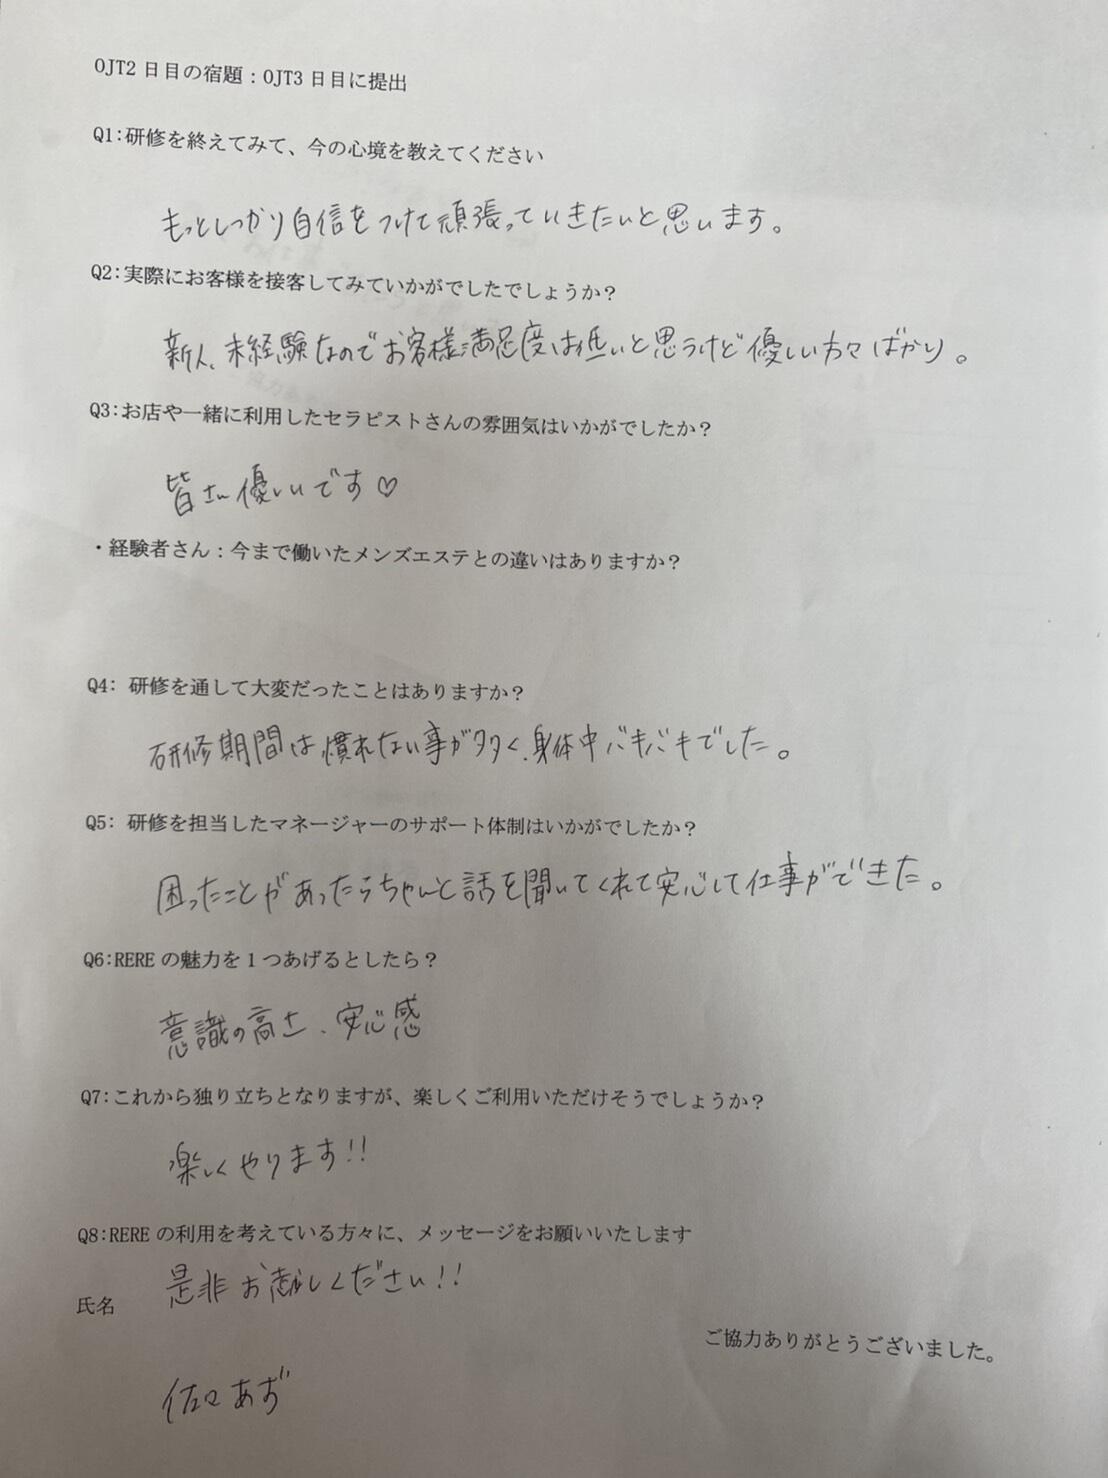 OJT2日目の宿題：OJT3日目に提出
Q1:研修を終えてみて、今の心境を教えてください
もっとしっかり自信をつけて頑張っていきたいと思います。
Q2:実際にお客様を接客してみていかがでしたでしょうか？
新人、未経験なのでお客様満足度は低いと思うけど優しい方々ばかり。
Q3:お店や一緒に利用したセラピストさんの雰囲気はいかがでしたか？
皆さん優しいです♡
・経験者さん：今まで働いたメンズエステとの違いはありますか？
Q4: 研修を通して大変だったことはありますか？
研修期間は慣れない事が多く、身体中バキバキでした。
Q5: 研修を担当したマネージャーのサポート体制はいかがでしたか？
困ったことがあったらちゃんと話を聞いてくれて安心して仕事ができた。
Q6:REREの魅力を1つあげるとしたら？
意識の高さ、安心感
Q7:これから独り立ちとなりますが、楽しくご利用いただけそうでしょうか？
楽しくやります!!
Q8:REREの利用を考えている方々に、メッセージをお願いいたします
是非お越しください!!
氏名
ご協力ありがとうございました。
佐々あず